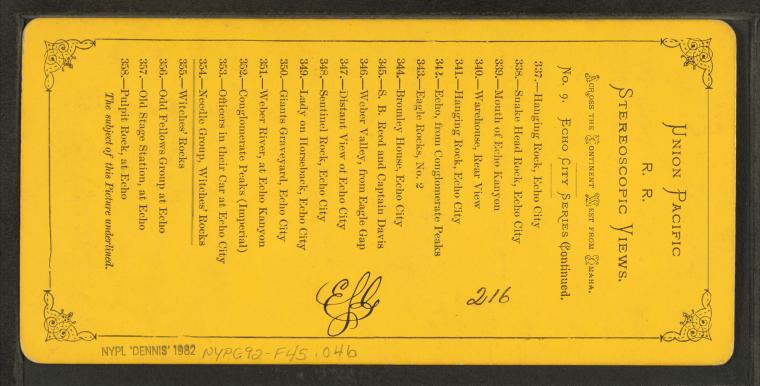 UNION PACIFIC
R. R.
STEREOSCOPIC VIEWS.
ACROSS THE CONTINENT WEST FROM OMAHA.
No. 9. ECHO CITY SERIES Continued.
337.—Hanging Rock, Echo City
338.—Snake Head Rock, Echo City
339.—Mouth of Echo Kanyon
340.—Warehouse, Rear View
341.—Hanging Rock, Echo City
342.—Echo, from Conglomerate Peaks
343.—Eagle Rocks, No. 2
344.—Bromley House, Echo City
345.—S. B. Reed and Captain Davis
346.—Weber Valley, from Eagle Gap
347.—Distant View of Echo City
348.—Sentinel Rock, Echo City
349.—Lady on Horseback, Echo City
350.—Giants Graveyard, Echo City
351.—Weber River, at Echo Kanyon
352.—Conglomerate Peaks (Imperial)
353.—Officers in their Car at Echo City
354.—Needle Group, Witches' Rocks
355.—Witches' Rocks
356.—Odd Fellows Group at Echo
357.—Old Stage Station, at Echo
358.—Pulpit Rock, at Echo
The subject of this Picture underlined.
216
NYPL 'DENNIS' 1982 NYPG92-F45.046